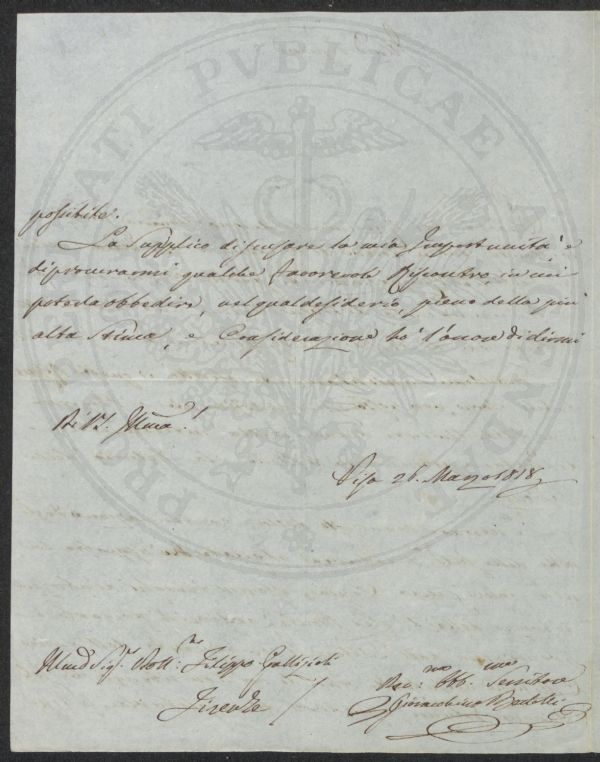 PROSPERITATI PVBLICAE AVGENDAE
possibile.
La Supplico di scusare la mia Importunità e
di procurarmi qualche favorevole Riscontro, in cui
poterla obbedire, nel qual desiderio, pieno della più
alta Stima, e Considerazione ho l'onore di dirmi
Di V.S. Illma.
Pisa 26. Marzo 1818.
Illmo Sigr. Dott. Filippo Gallizioli
Firenze
Dev.mo Obb.mo Servitore
Gioacchino